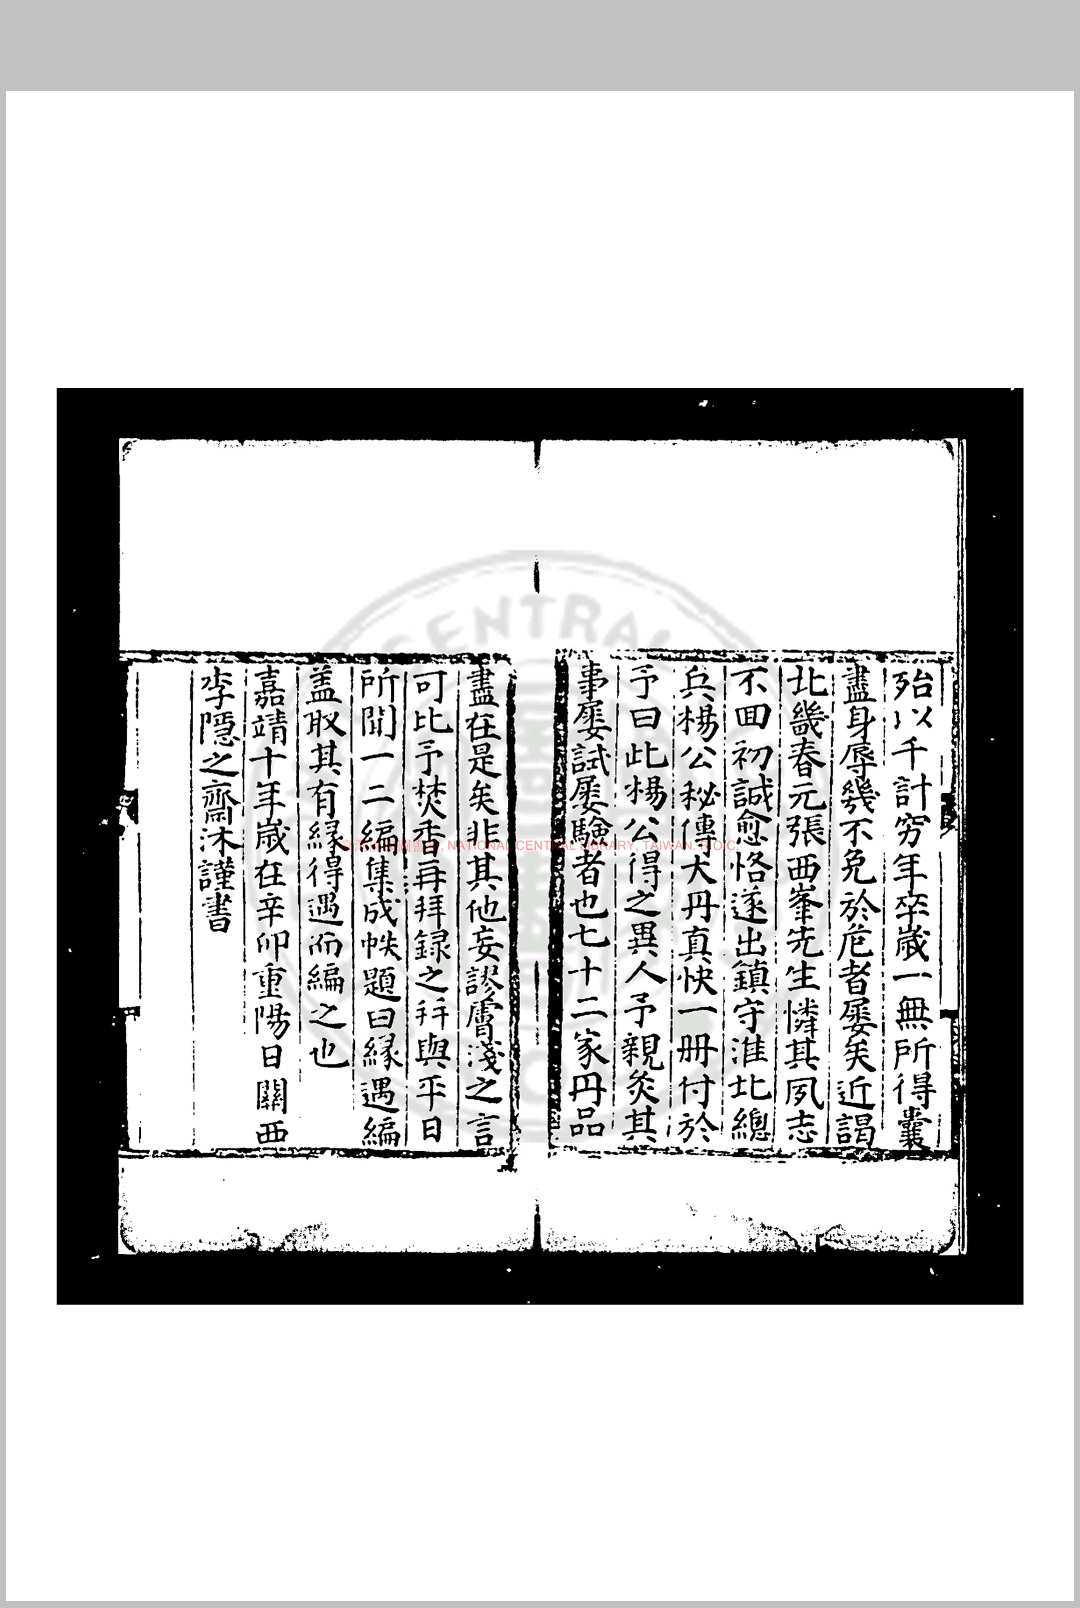 殆以千計穷年卒歲一無所得囊
盡身辱幾不免於危者屢矣近謁
北畿春元張西峯先生憐其夙志
不囬初誠愈恪遂出鎮守淮北總
兵楊公秘傳大丹真快一冊付於
予曰此楊公得之異人予親炙其
事屢試屢驗者也七十二家丹品
盡在是矣非其他妄謬膚淺之言
可比予焚香再拜録之并與平日
所聞一二編集成帙題曰縁遇編
盖取其有縁得遇而編之也
嘉靖十年歲在辛卯重陽日關西
李隱之齋沐謹書
NATIONAL CENTRAL LIBRARY, TAIWAN, R.O.C
CENTRAL